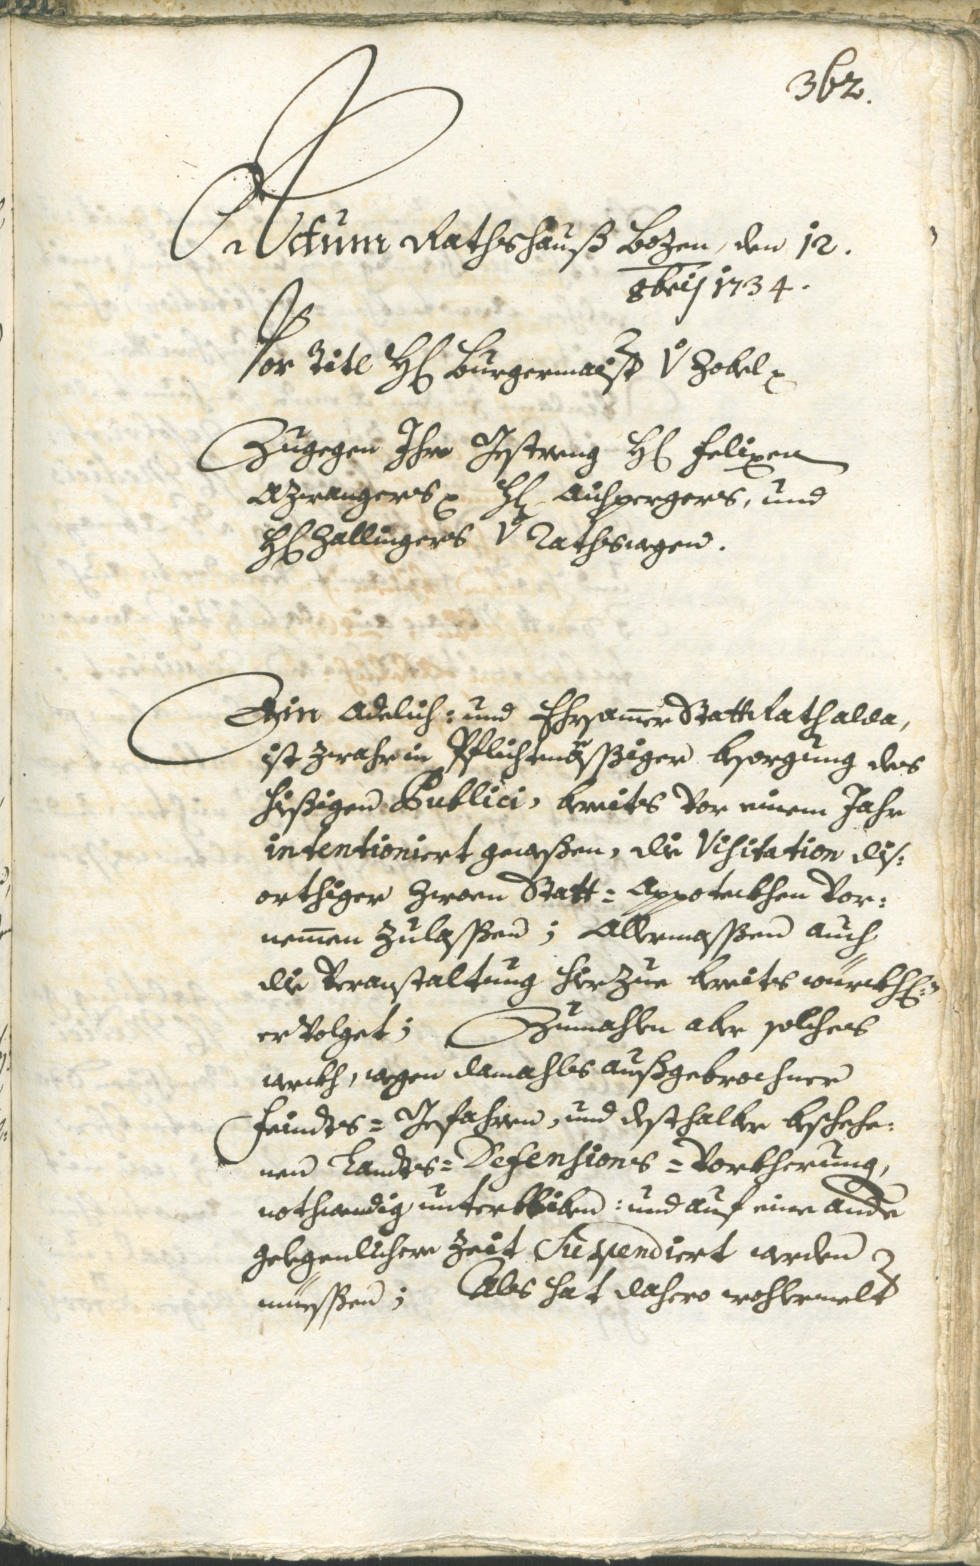 362.
Actum Rathshauß Bozen, den 12.
8bris 1734.
Vor Titl H. Burgermaister V Zobel
Zugegen Ihro Gestreng H. Felixen
Azwangers H. Aichpergers, und
H. Zallingers V Rathswegen.
Ein Adelich: und Ehrsammer Statt Rath alda,
ist zwahr in Pflichtmässiger besorgung des
hießigen Publici, bereits Vor einem Jahr
intentioniert geweßen, die Visitation dis:
orthiger zwoen Statt= Appoteckhen Vor:
nemmen zulassen; Allermassen auch
die Veranstaltung hierzue bereits würckh:
ervolget; Zumahlen aber solches
werckh, wegen damahls außgebrochner
Feindts= Gefahren, und desthalber beschehe:
nen Landts= Defensions= Vorkherung,
nothwendig unterbliben: und auf eine andere
gelegenlichere Zeit Suspendiert werden
müessen; Als hat dahero wohlermelt